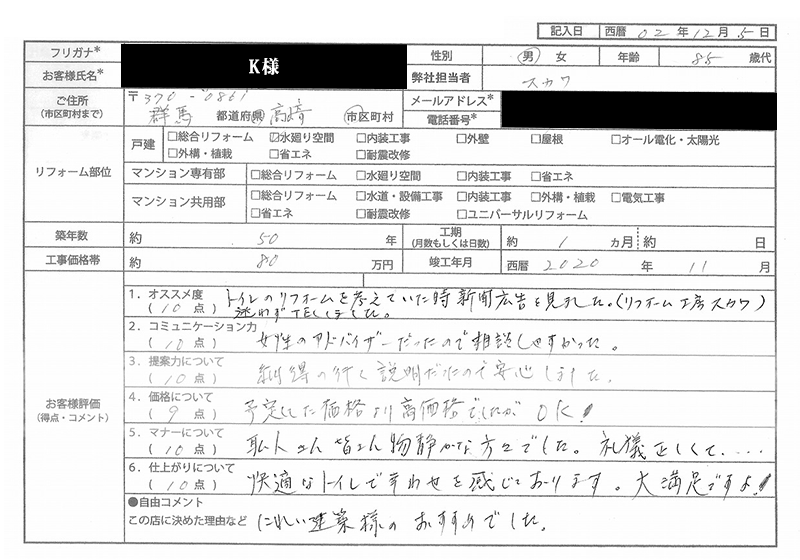 記入日 西暦 02 年 12 月 5 日
フリガナ* K様 性別 男 女 年齢 85 歳代
お客様氏名* 弊社担当者 スカワ
ご住所 〒370-0861 メールアドレス*
(市区町村まで) 群馬 都道府県 高崎 市区町村 電話番号*
リフォーム部位
戸建 □総合リフォーム ☑水廻り空間 □内装工事 □外壁 □屋根 □オール電化・太陽光
□外構・植栽 □省エネ □耐震改修
マンション専有部 □総合リフォーム □水廻り空間 □内装工事 □省エネ
マンション共用部 □総合リフォーム □水道・設備工事 □内装工事 □外構・植栽 □電気工事
□省エネ □耐震改修 □ユニバーサルリフォーム
築年数 約 50 年 工期 (月数もしくは日数) 約 1 ヵ月 約 日
工事価格帯 約 80 万円 竣工年月 西暦 2020 年 11 月
お客様評価
(得点・コメント)
1．オススメ度 トイレのリフォームを考えていた時新聞広告を見ました。(リフォーム工房スカワ)
(10 点) 迷わずTELしました。
2．コミュニケーション力
(10 点) 女性のアドバイザーだったので相談しやすかった。
3．提案力について
(10 点) 納得の行く説明だったので安心しました。
4．価格について
(9 点) 予定した価格より高価格でしたが OK!
5．マナーについて
(10 点) 職人さん皆さん物静かな方々でした。礼儀正しくて....
6．仕上がりについて
(10 点) 快適なトイレで幸わせを感じております。大満足ですよ!
●自由コメント
この店に決めた理由など 建築様のおすすめでした。